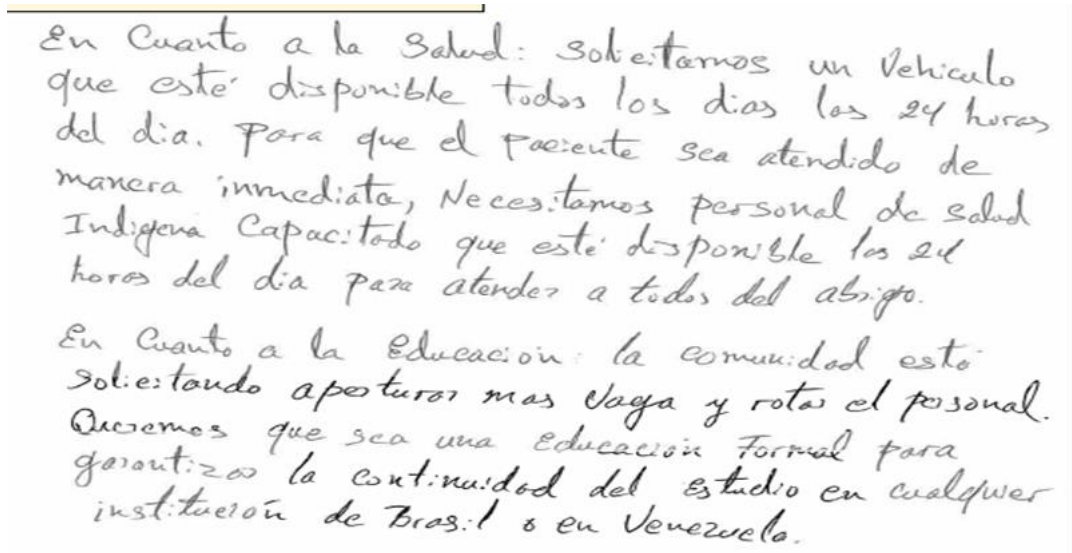 En Cuanto a la Salud: Solicitamos un Vehiculo
que esté disponible todos los dias las 24 horas
del dia. Para que el Paciente sea atendido de
manera inmediata, Necesitamos personal de salud
Indigena Capacitado que esté disponible las 24
horas del dia para atender a todos del abrigo.
En Cuanto a la Educacion: la comunidad está
Solicitando aperturar mas Vaga y rotar el personal.
Queremos que sea una Educación Formal para
garantizar la continuidad del estudio en cualquier
institución de Brasil o en Venezuela.